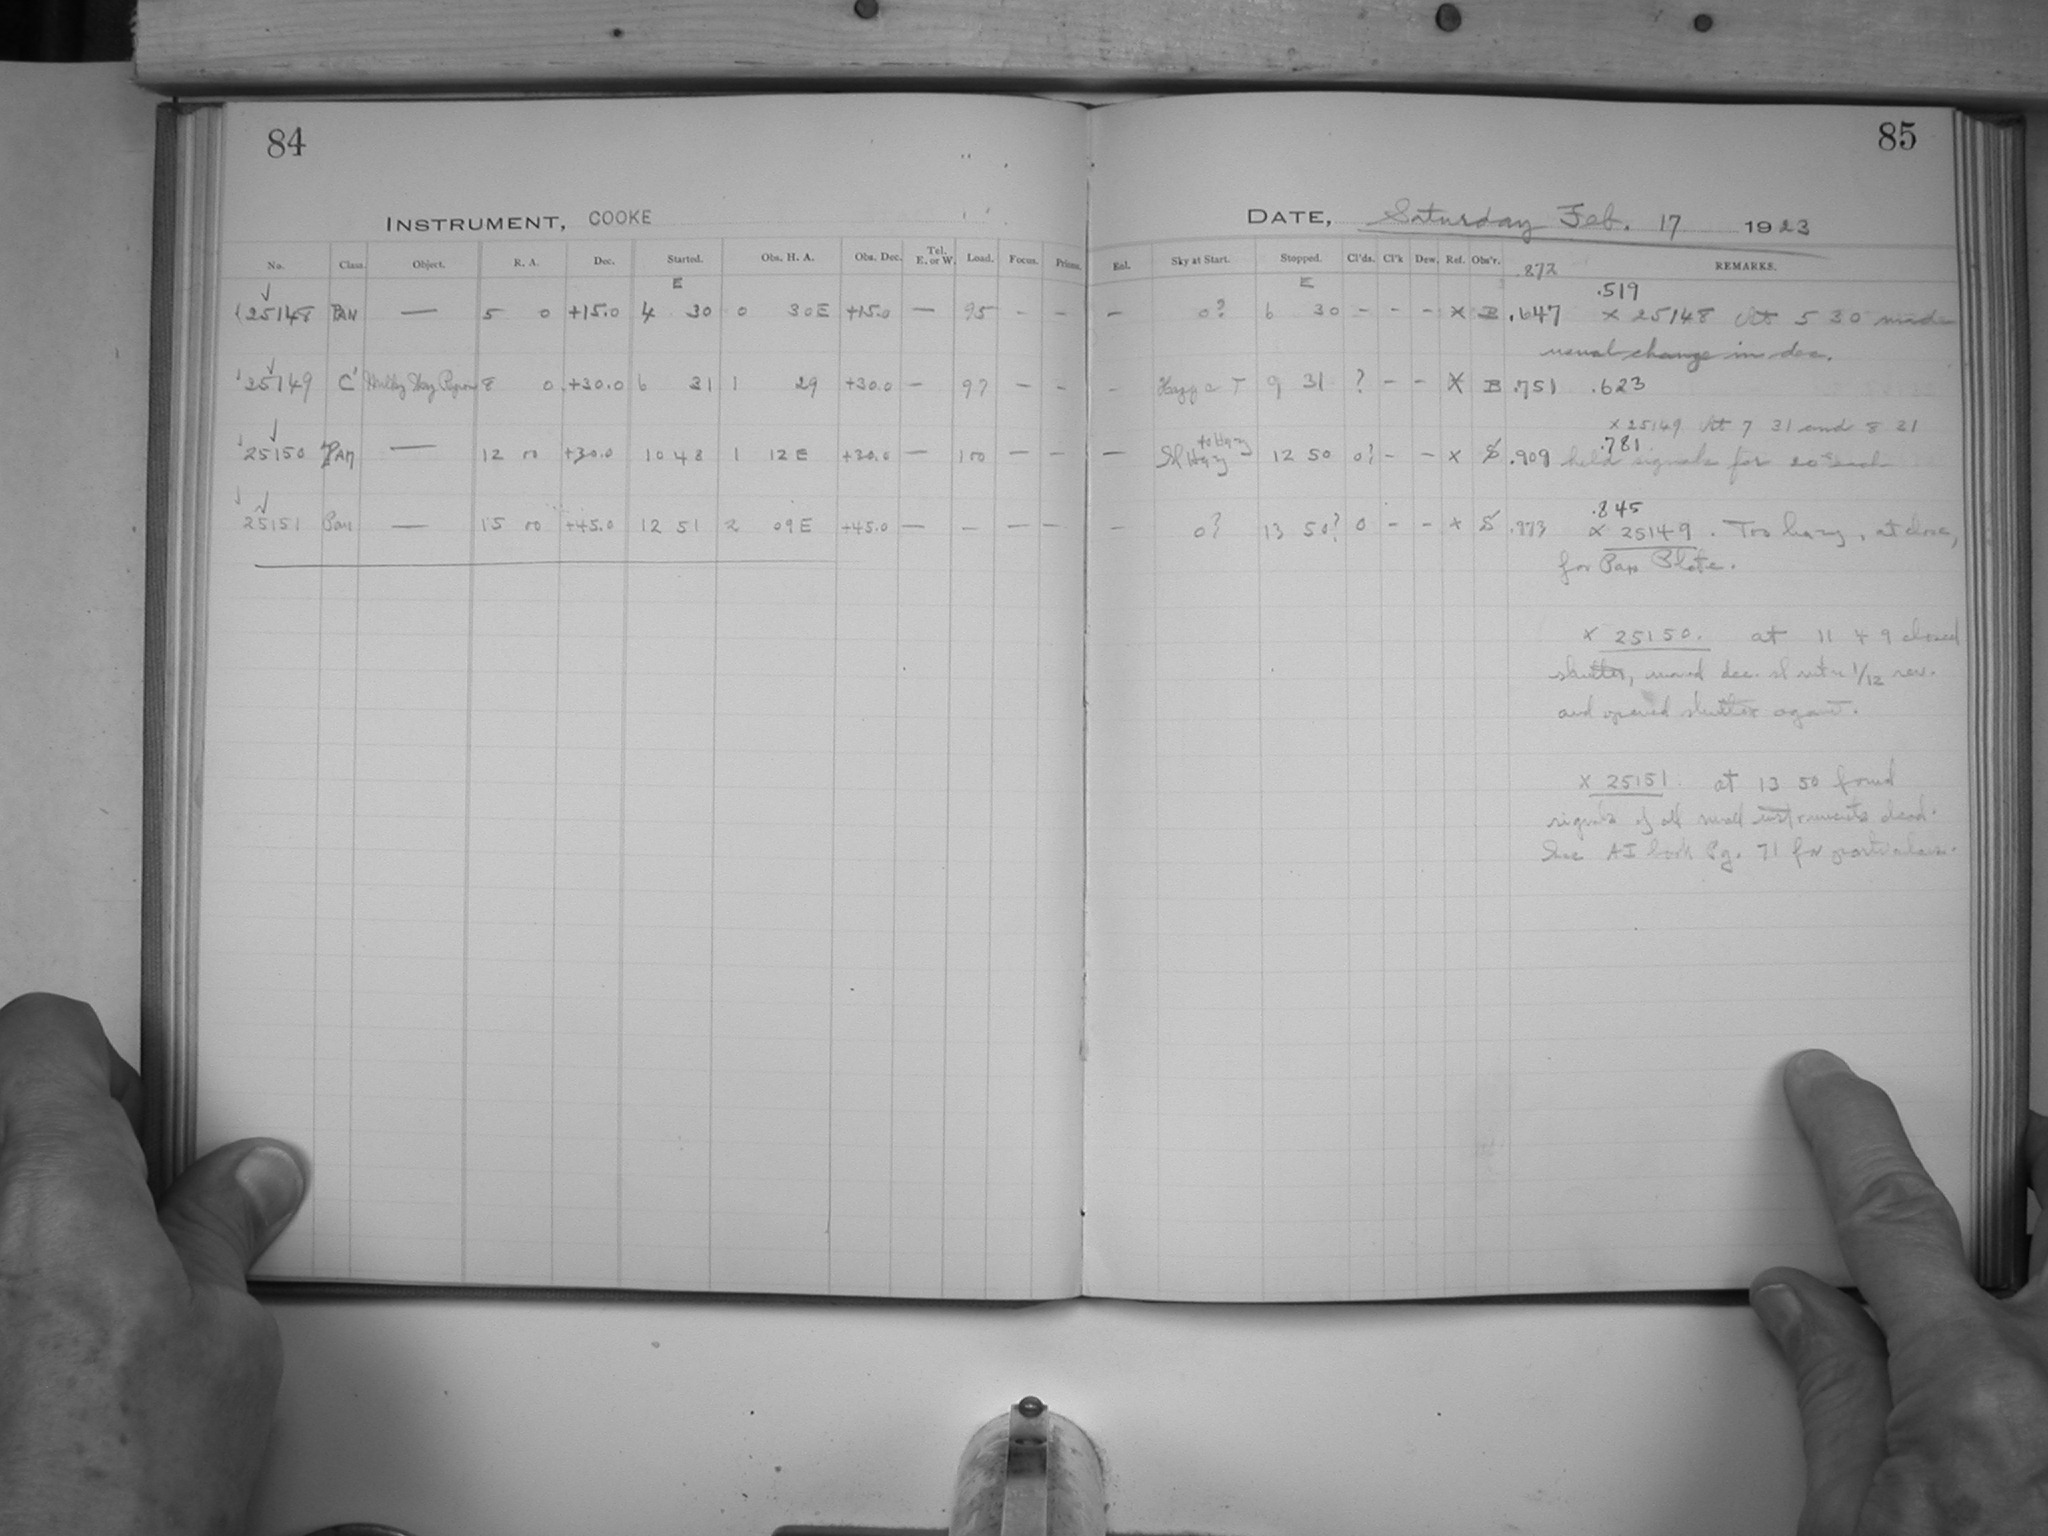 84
INSTRUMENT, COOKE
No. Class. Object. R. A. Dec. Started. Obs. H. A. Obs. Dec. Tel. E. or W. Load. Focus. Prisms.
E
25148 PAN — 5 0 +15.0 4 30 0 30E +15.0 — 95 – –
25149 C' Milky Way Region 8 0 +30.0 6 31 1 29 +30.0 – 97 – –
25150 PAN — 12 00 +30.0 10 48 1 12E +30.0 — 100 – –
25151 Pan — 15 00 +45.0 12 51 2 09E +45.0 — – — –
85
DATE, Saturday Feb. 17 1923
Enl. Sky at Start. Stopped. Cl'ds. Cl'k Dew. Ref. Obs'r. .872 REMARKS.
E
– 0? 6 30 – – – X B .647 .519 X 25148 At 5 30 made
usual change in dec.
– 9 31 ? – – X B .751 .623
X 25149 At 7 31 and 8 31
— Sl Hazy to Hazy 12 50 0? – – X S .909 .781 held signals for 20s each
– 0? 13 50? 0 – – X S .973 .845
X 25149. Too hazy, at close,
for Pan Plate.
X 25150. at 11 49 closed
shutter, moved dec. 1/12 rev.
and opened shutter again.
X 25151. at 13 50 found
signals of all small instruments dead.
See AI book Pg. 71 for particulars.